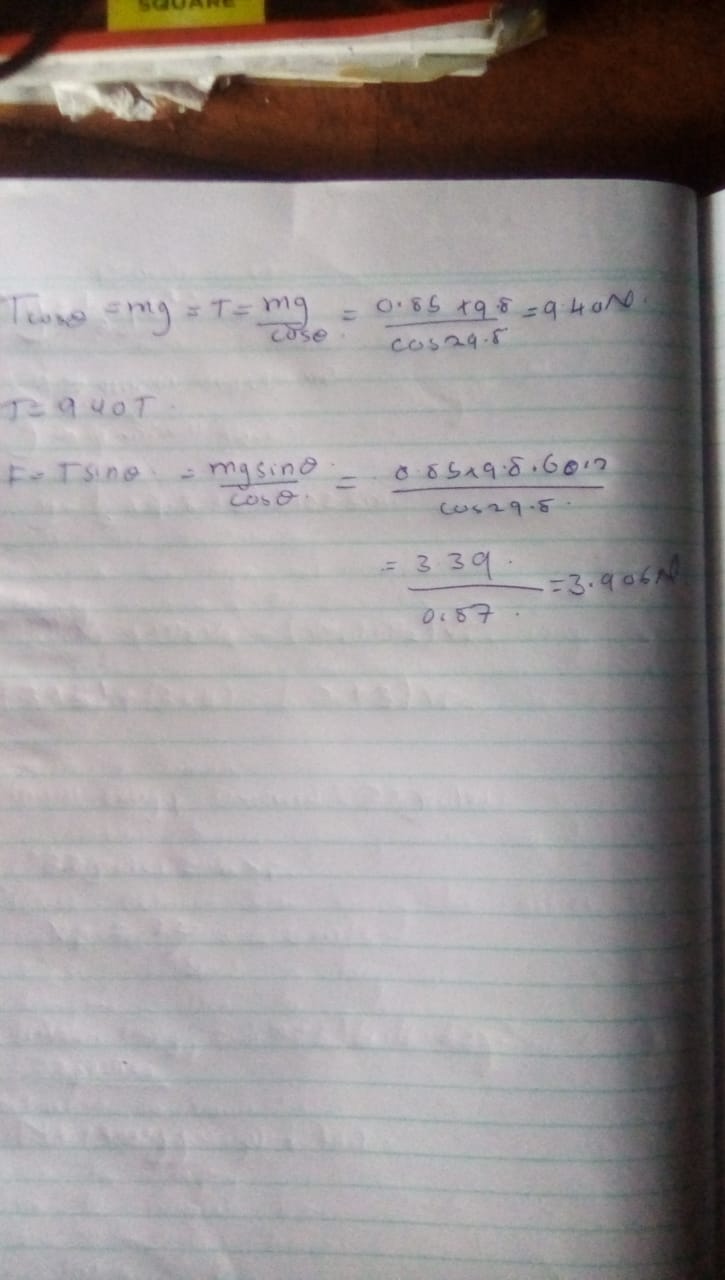 SQUARE
Tcosθ = mg = T = mg/cosθ = 0.85 × 9.8/cos29.8 = 9.40N.
T = 940T.
F = Tsinθ. = mgsinθ/cosθ. =
cos29.8.
= 3 39./0.87. = 3.906N